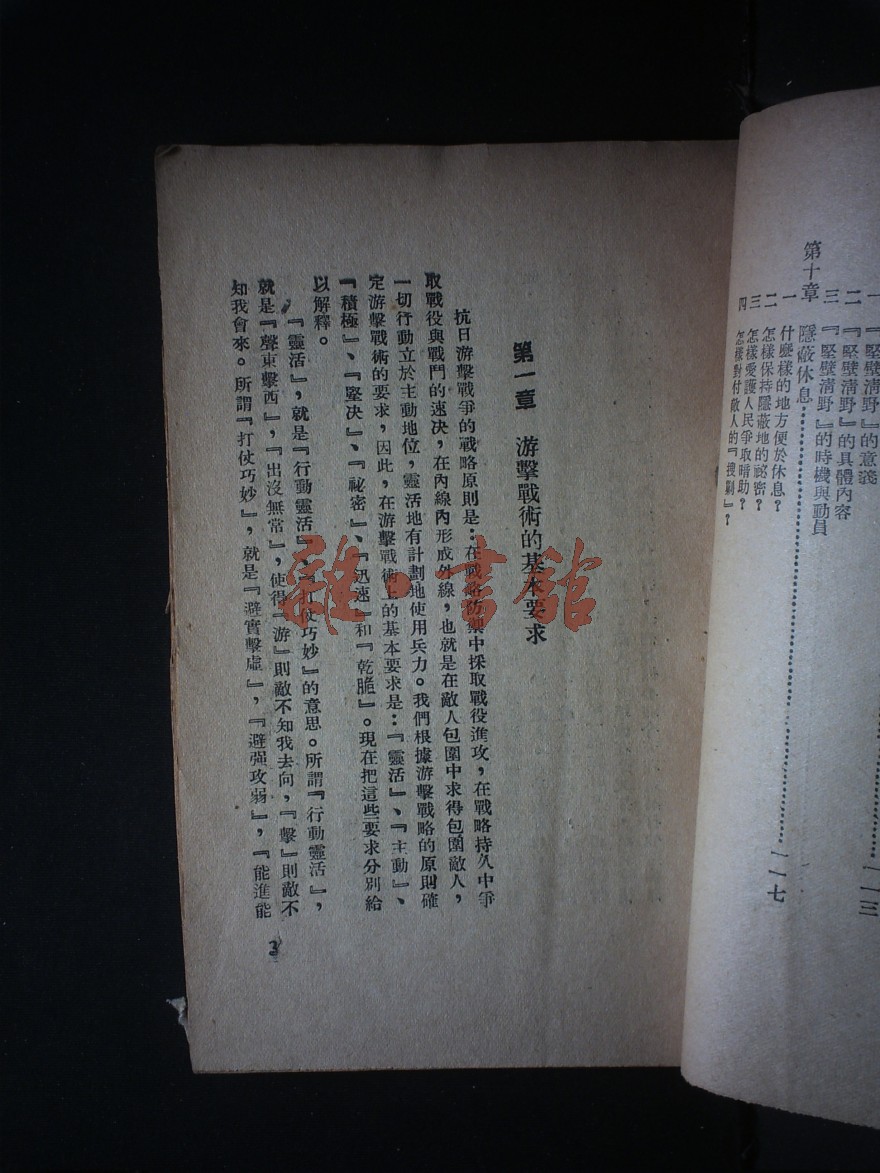 一 『堅壁淸野』的意義
二 『堅壁淸野』的具體內容
三 『堅壁淸野』的時機與動員……一一三
第十章 隱蔽休息……一一七
一 什麼樣的地方便於休息？
二 怎樣保持隱蔽地的祕密？
三 怎樣愛護人民爭取暗助？
四 怎樣對付敵人的『搜剿』？
第一章 游擊戰術的基本要求
抗日游擊戰爭的戰略原則是：在戰略防禦中採取戰役進攻，在戰略持久中爭
取戰役與戰鬥的速決，在內線內形成外線，也就是在敵人包圍中求得包圍敵人，
一切行動立於主動地位，靈活地有計劃地使用兵力。我們根據游擊戰略的原則確
定游擊戰術的要求，因此，在游擊戰術上的基本要求是：『靈活』、『主動』、
『積極』、『堅决』、『祕密』、『迅速』和『乾脆』。現在把這些要求分別給
以解釋。
『靈活』，就是『行動靈活』、『打仗巧妙』的意思。所謂『行動靈活』，
就是『聲東擊西』，『出沒無常』，使得『游』則敵不知我去向，『擊』則敵不
知我會來。所謂『打仗巧妙』，就是『避實擊虛』，『避强攻弱』，『能進能
3
雜·書館